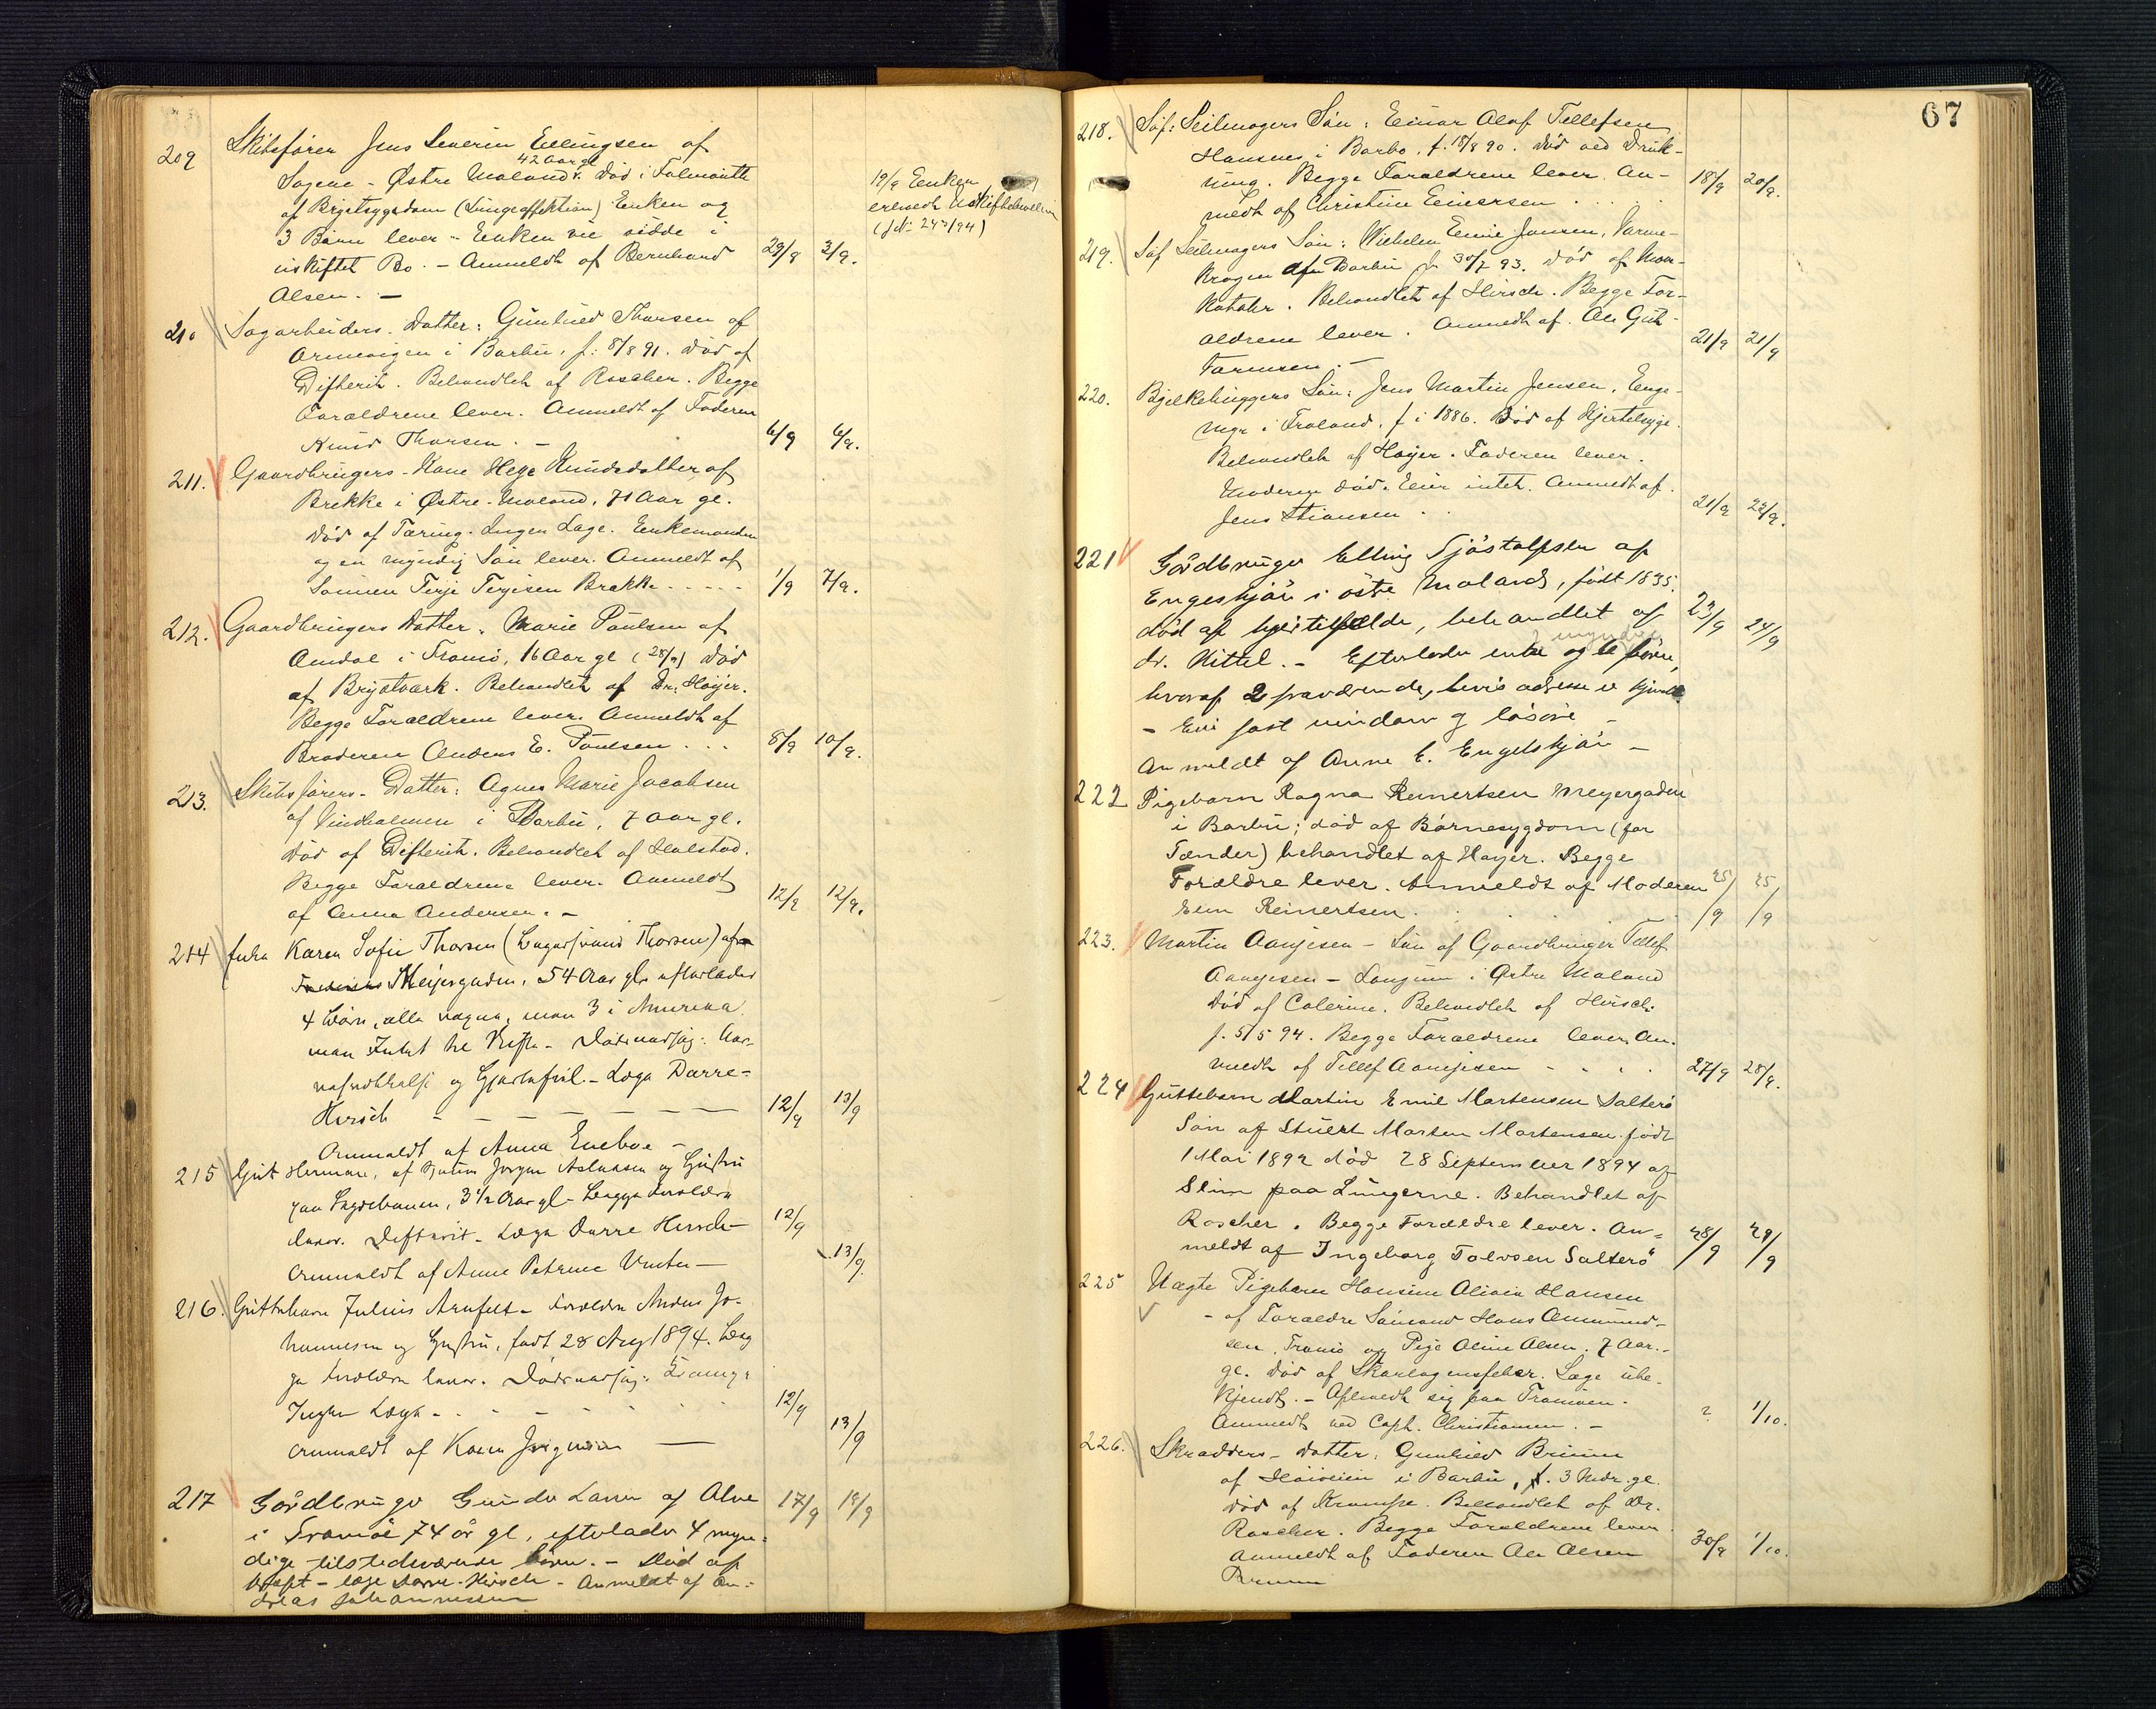 209 Skibsfører Jens Severin Ellingsen af
42 Aar gl.
Sagene - Østre Moland. Død i Falmouth
af Brystsygdom (Lungeaffektion) Enken og
3 Børn lever - Enken vil sidde i
uskiftet Bo. - Anmeldt af Bernhard 29/8 3/9.
Olsen. -
19/9 Enken
erholdt Uskiftebevilling
(JN: 243/94)
210 Sagarbeiders Datter: Gunhild Thorsen af
i Barbu, f: 8/8 91. Død af
Difterit. Behandlet af Roscher. Begge
Forældrene lever. Anmeldt af Faderen
Knud Thorsen. - 6/9 6/9.
211. Gaardbrugers - Kone Hege Knudsdatter af
Brekke i Østre-Moland, 71 Aar gl.
Død af Tæring. Ingen Læge. Enkemanden
og en myndig Søn lever. Anmeldt af
Sønnen Terje Terjesen Brekke ----- 1/9 7/9.
212. Gaardbrugers Datter, Marie Poulsen af
Amdal i Tromø, 16 Aar gl (28/9) Død
af Brystværk. Behandlet af Dr. Høyer.
Begge Forældrene lever. Anmeldt af
Broderen Anders E. Poulsen ... 8/9 10/9.
213. Skibsførers - Datter: Agnes Marie Jacobsen
af Vindholmen i Barbu, 7 Aar gl.
Død af Difterit. Behandlet af Holstad.
Begge Forældrene lever. Anmeldt
af Anna Andersen. - 12/9 12/9.
214 Enke Karen Sofie Thorsen (Thorsen) af
Meijergaden, 54 Aar gl. efterlader
4 Børn, alle, men 3 i Amerika
man Intet til Skifte - Dødsaarsag:
og Hjertefeil. - Læge Darre-
Hirsch - - - - - - - 12/9 13/9
Anmeldt af Anna Eneboe -
215 Gut Herman, af Jørgen Aslaksen og Hustru
paa, 3 1/2 Aar gl - Begge Forældre
lever. Difterit - Læge Darre Hirsch - 12/9
Anmeldt af Anne Petrine - 13/9.
216. Guttebarn Julius Arnfelt - Forældre Anders Jo-
hannesen og Hustru, født 28 Aug 1894. Beg
ge Forældre lever. Dødsaarsag: Krampe
Ingen Læge - - - - - - 12/9
Anmeldt af Karen Jørgensen — 13/9
217 Gårdbruger Gunder Larsen af Alve 17/9 18/9
i Tromøe 74 år gl, efterlader 4 myn=
dige tilstedeværende børn. - Død af
Kræft - læge Darre-Hirsch - Anmeldt af An=
dreas Johannessen
67
218. Søf: Seilmagers Søn: Einar Olaf Tellefsen
Hansnes i Barbo, f. 18/8 90. Død ved Druk-
ning. Begge Forældrene lever. An- 18/9 20/9.
meldt af Christine Einersen ...
219. Søf Seilmagers Søn: Wilhelm Emil Jansen,
Krogen Barbu f. 30/7 93. Død af
Behandlet af Hirsch. Begge For-
ældrene lever. Anmeldt af. 21/9 21/9
220. Bjelkehuggers Søn: Jens Martin Jensen, Enge-
i Froland, f i 1886. Død af Hjertesyge.
Behandlet af Høyer. Faderen lever.
Moderen død. Eier intet. Anmeldt af
Jens Stiansen .. 21/9 22/9.
221 Gårdbruger Elling Tjøstolfsen af
Engeskjær i østre Moland, født 1835.
død af hjertefeil, behandlet af 23/9 24/9
myndige
dr. Kittel. - Efterlader enke og 6 børn,
hvoraf 2 fraværende, hvis adresse er kjendt
- Eier fast eiendom og løsøre -
Anmeldt af Anne E. Engelskjær -
222 Pigebarn Ragna Reinertsen Meyergaden
i Barbu; død af Børnesygdom (for
Tænder) behandlet af Høyer. Begge
Forældre lever. Anmeldt af Moderen 25/9 25/9
Elen Reinertsen.
223. Martin Aanjesen - Søn af Gaardbruger Tellef
Aanjesen - Longum i Østre Moland
Død af Colerine. Behandlet af Hirsch.
f. 5/5 94. Begge Forældrene lever. An.
meldt af Tellef Aanjesen - - . . 27/9 28/9.
224 Guttebarn Martin Emil Martensen Salterø
Søn af Stuert Marten Martensen født
1 Mai 1892 død 28 September 1894 af
Slim paa Lungerne. Behandlet af
Roscher. Begge Forældre lever. An= 28/9 29/9
meldt af Ingeborg Tolvsen Salterø
225 Uægte Pigebarn Hansine Olivia Hansen
- af Forældre Sømand Hans Ommund-
sen, Tromø og Pige Oline Olsen. 7 Aar.
gl. Død af Skarlagensfeber. Læge ube-
kjendt. - Opholdt sig paa Tromøen.
Anmeldt ved Capt. Christiansen. - ? 1/10.
226. Skrædders - Datter: Gunhild Bruun
af Høiveien i Barbu, f. 3 Mdr. gl.
Død af Krampe. Behandlet af Dr.
Roscher. Begge Forældrene lever
Anmeldt af Faderen Ole Olsen 30/9 1/10.
Bruun